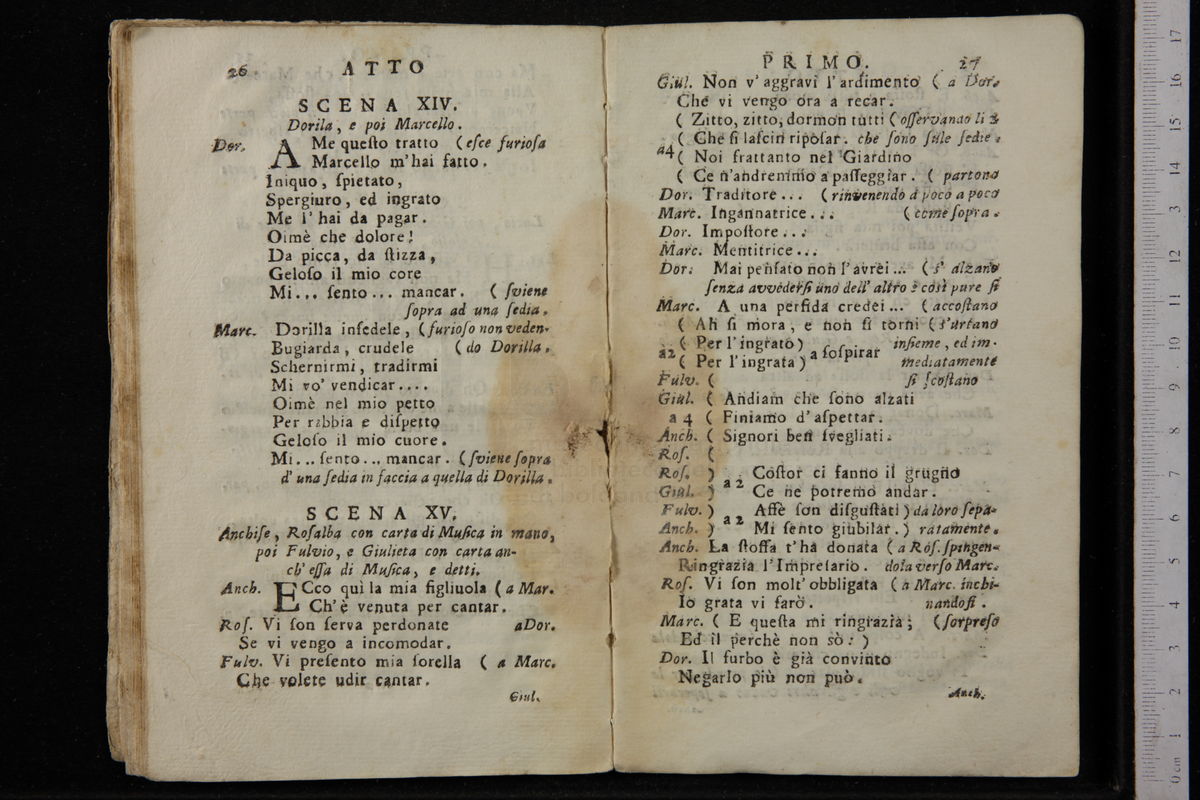 26 ATTO
SCENA XIV.
Dorila, e poi Marcello.
Dor. A Me queſto tratto (eſce furioſa
Marcello m'hai fatto.
Iniquo, ſpietato,
Spergiuro, ed ingrato
Me l'hai da pagar.
Oimè che dolore!
Da picca, da ſtizza,
Geloſo il mio core
Mi... ſento... mancar. (ſviene
ſopra ad una ſedia.
Marc. Dorilla infedele, (furioſo non veden-
Bugiarda, crudele (do Dorilla.
Schernirmi, tradirmi
Mi vo' vendicar....
Oimè nel mio petto
Per rabbia e diſpetto
Geloſo il mio cuore.
Mi... ſento... mancar. (ſviene ſopra
d'una ſedia in faccia a quella di Dorilla.
SCENA XV.
Anchiſe, Roſalba con carta di Muſica in mano,
poi Fulvio, e Giulieta con carta an-
ch'eſſa di Muſica, e detti.
Anch. ECco quì la mia figliuola (a Mar.
Ch'è venuta per cantar.
Roſ. Vi ſon ſerva perdonate aDor.
Se vi vengo a incomodar.
Fulv. Vi preſento mia ſorella (a Marc.
Che volete udir cantar.
Giul.
PRIMO. 27
Giul. Non v'aggravi l'ardimento (a Dor.
Che vi vengo ora a recar.
( Zitto, zitto, dormon tutti (oſſervando li 2
( Che ſi laſcin ripoſar. che ſono ſule ſedie.
a4 ( Noi frattanto nel Giardino
( Ce n'andremmo a paſſeggiar. ( partono
Dor. Traditore... (rinvenendo a poco a poco
Marc. Ingannatrice... (come ſopra.
Dor. Impoſtore...
Marc. Mentitrice...
Dor. Mai penſato non l'avrei... (s'alzano
ſenza avvederſi uno dell'altro e così pure ſi
Marc. A una perfida credei... (accoſtano
( Ah ſi mora, e non ſi torni (s'urtano
a2 ( Per l'ingrato) a ſoſpirar inſieme, ed im-
( Per l'ingrata) mediatamente
Fulv. ( ſi ſcoſtano
Giul. ( Andiam che ſono alzati
a 4 ( Finiamo d'aſpettar.
Anch. ( Signori ben ſvegliati.
Roſ. (
Roſ. ) a 2 Coſtor ci fanno il grugno
Giul. ) Ce ne potremo andar.
Fulv. ) a 2 Affè ſon diſguſtati) da loro ſepa-
Anch. ) Mi ſento giubilar.) ratamente.
Anch. La ſtoffa t'ha donata (a Roſ. ſpingen-
Ringrazia l'Impreſario. dola verſo Marc.
Roſ. Vi ſon molt'obbligata (a Marc. inchi-
Io grata vi farò. nandoſi.
Marc. ( E queſta mi ringrazia; (ſorpreſo
Ed il perchè non sò: )
Dor. Il furbo è già convinto
Negarlo più non può.
Anch.
0 cm 1 2 3 4 5 6 7 8 9 10 11 12 13 14 15 16 17